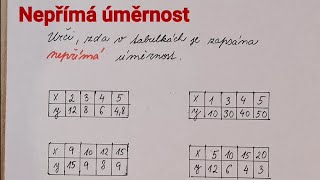 Nepřímá úměrnost
Urči, zda v tabulkách je zapsána
nepřímá úměrnost.
x 2 3 4 5
y 12 8 6 4,8
x 1 3 4 5
y 10 30 40 50
x 9 10 12 15
y 15 9 8 9
x 5 10 15 20
y 12 6 4 3